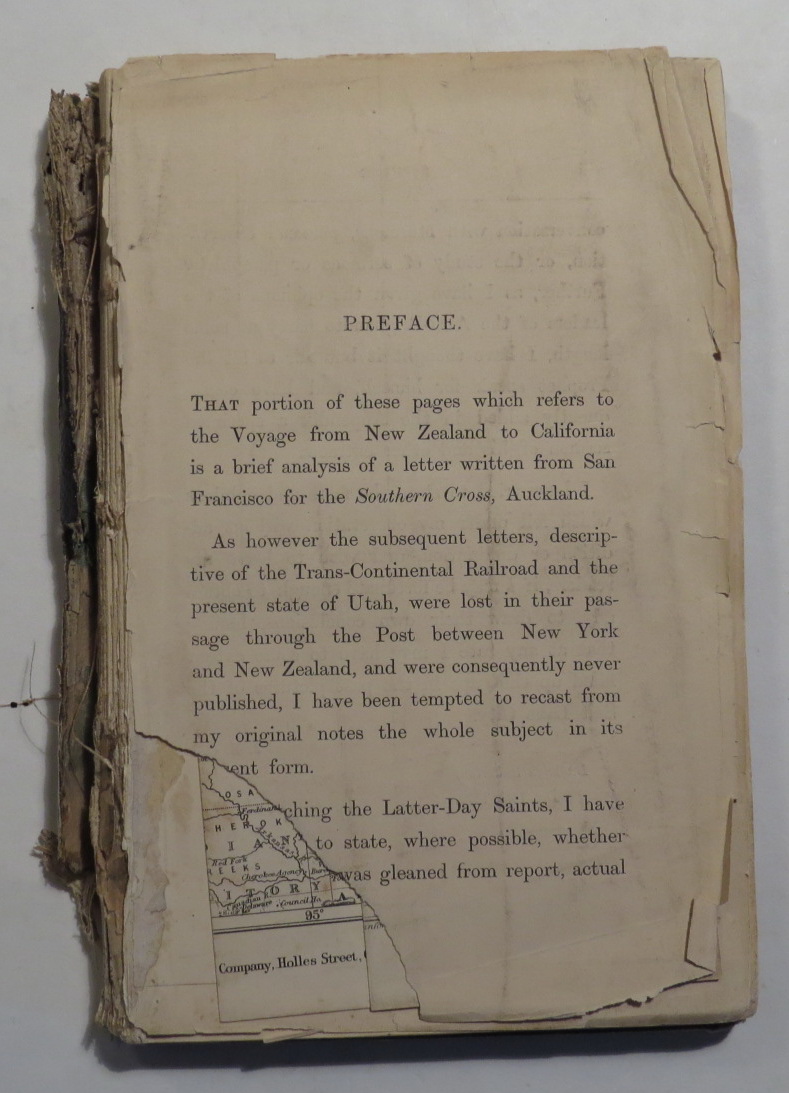 PREFACE.
THAT portion of these pages which refers to
the Voyage from New Zealand to California
is a brief analysis of a letter written from San
Francisco for the Southern Cross, Auckland.
As however the subsequent letters, descrip-
tive of the Trans-Continental Railroad and the
present state of Utah, were lost in their pas-
sage through the Post between New York
and New Zealand, and were consequently never
published, I have been tempted to recast from
my original notes the whole subject in its
ent form.
ching the Latter-Day Saints, I have
to state, where possible, whether
was gleaned from report, actual
OSA
Ferdinand
HEROK
Arkansas
I A N
Red Fork
REEKS
Cherokee Agency
ITORY
Canadian
Delaware
Council Ho.
A
95°
Company, Holles Street,